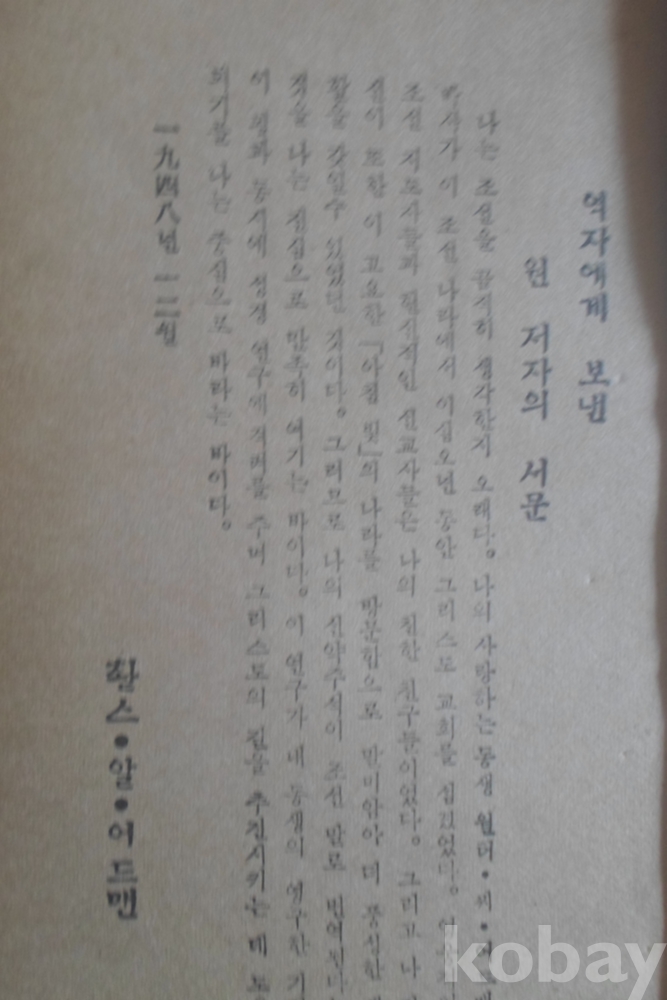 역자에게 보낸
원 저자의 서문
나는 조선을 끔직히 생각한지 오래다. 나의 사랑하는 동생 월터・씨・
이 조선 나라에서 이십오년 동안 그리스도 교회를 섬겼었다.
조선 지도자들과 헌신적인 선교사들은 나의 친한 친구들이었다. 그리고 나
또한 이 고요한 「아침 빛」의 나라를 방문함으로 말미암아 더 풍성한
활을 갖일수 있었던 것이다. 그러므로 나의 신약주석이 조선 말로
것을 나는 진심으로 만족히 여기는 바이다. 이 연구가 내 동생의 영구한 기
이 됨과 동시에 성경 연구에 격려를 주며 그리스도의 일을 추진시키는 데 도
되기를 나는 충심으로 바라는 바이다.
一九四八년 一二월
촬스・알・어드맨
kobay